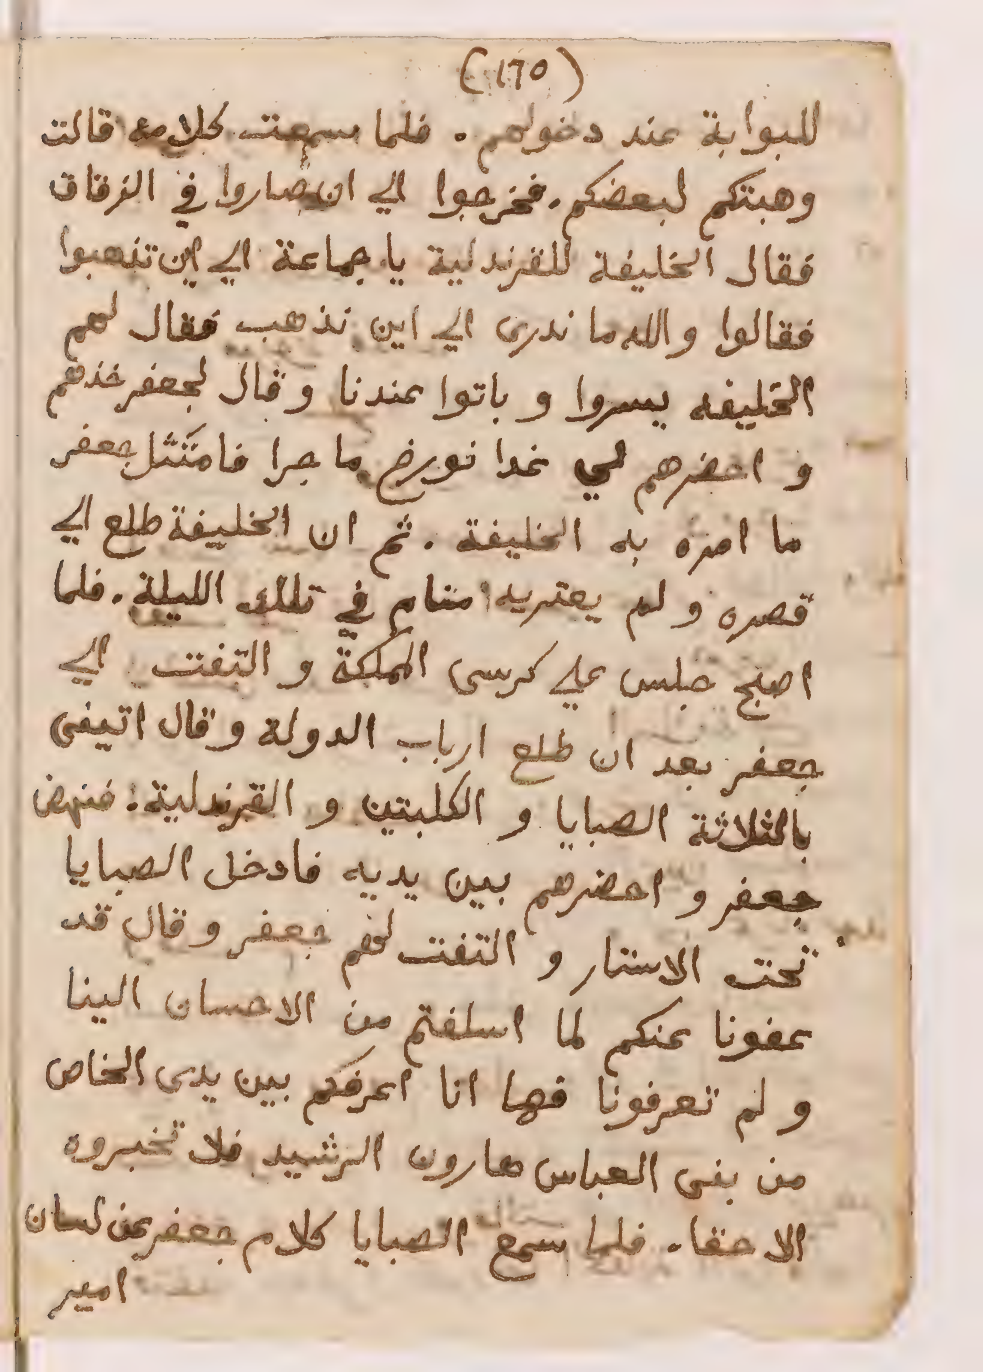 (١٦٥)
للبوابة عند دخولهم . فلما سمعت كلامه قالت
وهبتكم لبعضكم . فخرجوا الي ان صاروا في الزقاق
فقال الخليفة للقرندلية يا جماعة الي اين تذهبوا
فقالوا والله ما ندرى الي اين نذهب فقال لهم
الخليفه يسروا و باتوا عندنا و قال لجعفر خذهم
و احضرهم لي غدا نورخ ما جرا فامتثل جعفر
ما امره به الخليفة . ثم ان الخليفة طلع الي
قصره و لم يعتريه منام في تلك الليلة . فلما
اصبح جلس علي كرسى المملكة و التفت الي
جعفر بعد ان طلع ارباب الدولة و قال اتيفى
بالثلاثة الصبايا و الكلبتين و القرندلية . فنهض
جعفر و احضرهم بين يديه فادخل الصبايا
تحت الاستار و التفت لهم جعفر و قال قد
عفونا عنكم لما اسلفتم من الاحسان الينا
و لم تعرفونا فها انا اعرفكم بين يدى الخاص
من بنى العباس هارون الرشيد فلا تخبروه
الا حقا . فلما سمع الصبايا كلام جعفر عن لسان
امير